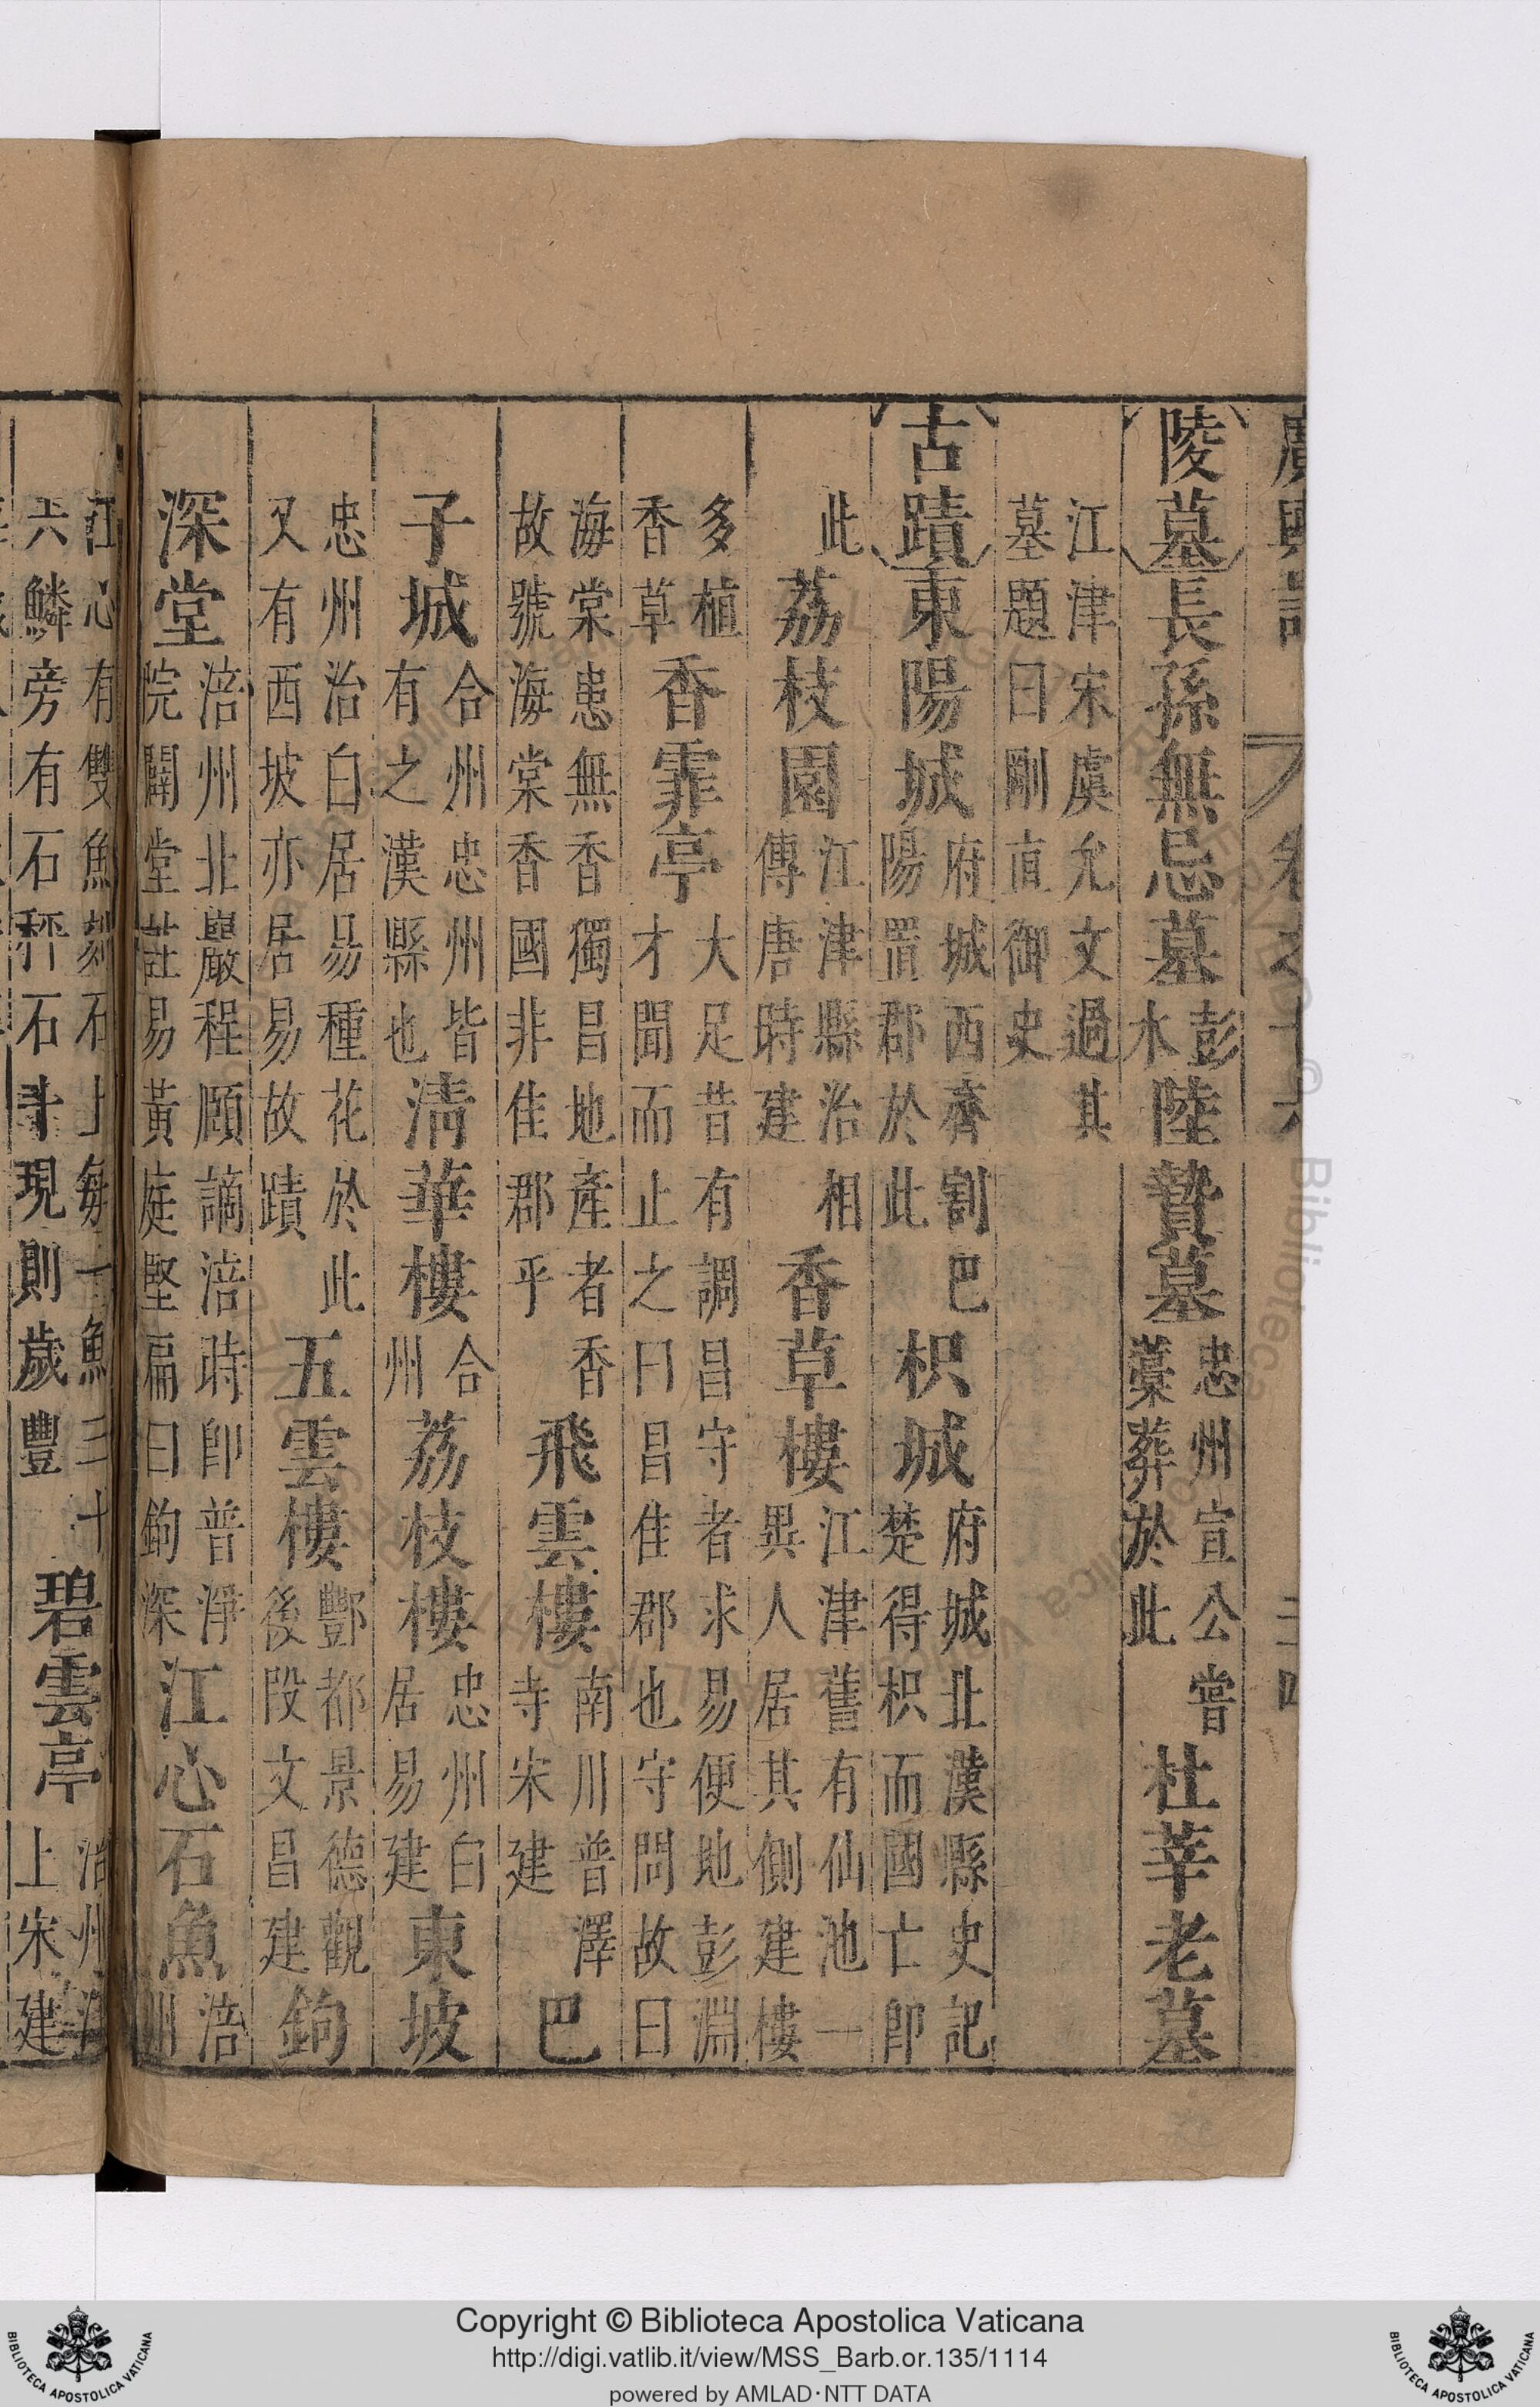 廣輿記 卷之十六
陵墓長孫無忌墓彭水陸贄墓忠州宣公嘗藁葬於此杜莘老墓
江津宋虞允文過其墓題曰剛直御史
古蹟東陽城府城西齊割巴陽置郡於此枳城府城北漢縣史記楚得枳而國亡即
此荔枝園江津縣治相傳唐時建香草樓江津舊有仙池一異人居其側建樓
多植香草香霏亭大足昔有調昌守者求易便地彭淵才聞而止之曰昌佳郡也守問故曰
海棠患無香獨昌地產者香故號海棠香國非佳郡乎飛雲樓南川普澤寺宋建巴
子城合州忠州皆有之漢縣也清華樓合州荔枝樓忠州白居易建東坡
忠州治白居易種花於此又有西坡亦居易故蹟五雲樓酆都景德觀後段文昌建鉤
深堂涪州北巖程頤謫涪時即普淨院闢堂註易黃庭堅扁曰鉤深江心石魚涪州
江心有雙魚刻石上每一魚三十六鱗旁有石秤石斗現則歲豐碧雲亭涪州上宋建
Copyright © Biblioteca Apostolica Vaticana
http://digi.vatlib.it/view/MSS_Barb.or.135/1114
powered by AMLAD·NTT DATA
BIBLIOTECA APOSTOLICA VATICANA
BIBLIOTECA APOSTOLICA VATICANA